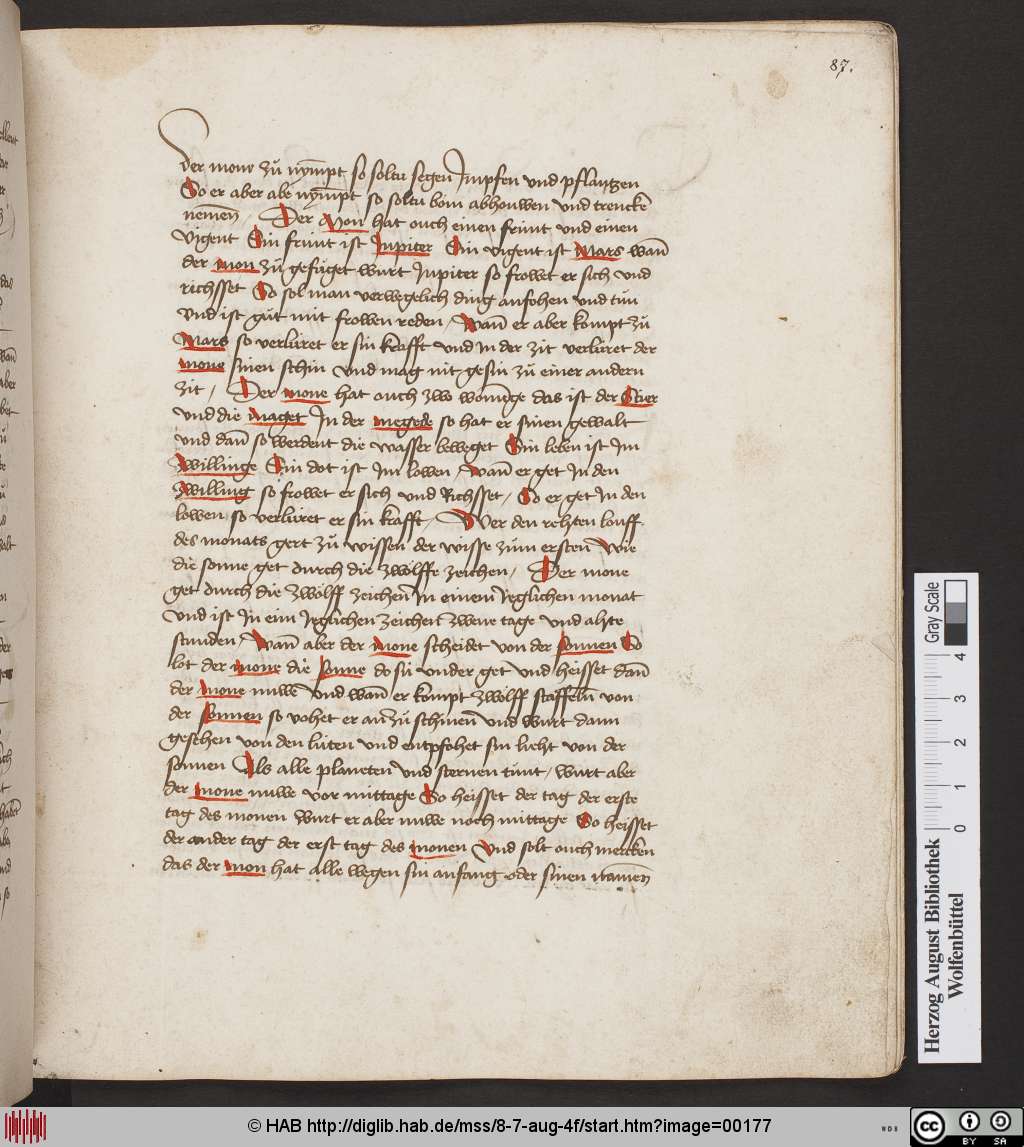 87.
der mone zů nÿmpt so soltu segen Impfen und pflantzen
So er aber abe nympt so soltu bom abhouwen und trencke
nemen̄ Der Mon hat ouch einen frúnt und einen
vigent Sin frúnt ist Jupiter Sin vigent ist Mars wan̄
der mon zů gefůget wurt Jupiter so frowet er sich und
richsset So sol man verwegelich ding anfohen und tůn
und ist gůt mit frowen reden / Wan̄ er aber kompt zů
Mars so verlúret er sin krafft und In der zit verlúret der
mone sinen schin und mag nit gesin zů einer andern
zit / Der mone hat ouch zwo wonūge das ist der Stier
und die maget In der megede so hat er sinen gewalt
und dan̄ so werdent die wasser beweget Sin leben ist Im
zwillinge Sin dot ist Im lowen / Wan̄ er get In den
zwilling so frowet er sich und Richsset / So er get In den
lowen so verlúret er sin krafft / Wer den rehten louff
des monats gert zů wissen der wisse zům ersten Wie
die sonne get durch die zwölffe zeichen / Der mone
get durch die zwölff zeichen In einem Jeglichen monat
und ist In eim Jeglichen zeichen zwene tage und ahte
stunden / Wan̄ aber der mone scheidet von der sonnen So
lot der mone die sonne do sú under get und heisset dan̄
der mone nuwe und wan̄ er kompt zwölff staffeln von
der sonnen so vohet er an zů schinen und wurt dann
gesehen von den lúten und entpfohet sin lieht von der
sonnen Als alle planeten und sternen tůnt / wurt aber
der mone nuwe vor mittage So heisset der tag der erste
tag des monen wurt er aber nuwe noch mittage So heisset
der ander tag der erst tag des monen Und solt ouch mercken
das der mon hat alle wegen sin anfang oder sinen
Herzog August Bibliothek
Wolfenbüttel
Gray Scale
0 1 2 3 4
© HAB http://diglib.hab.de/mss/8-7-aug-4f/start.htm?image=00177
WDB
cc BY SA